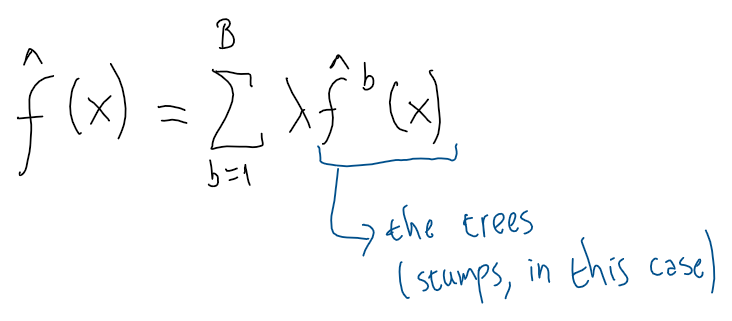 f̂(x) = ∑_{b=1}^{B} λf̂^b(x)
the trees
(stumps, in this case)